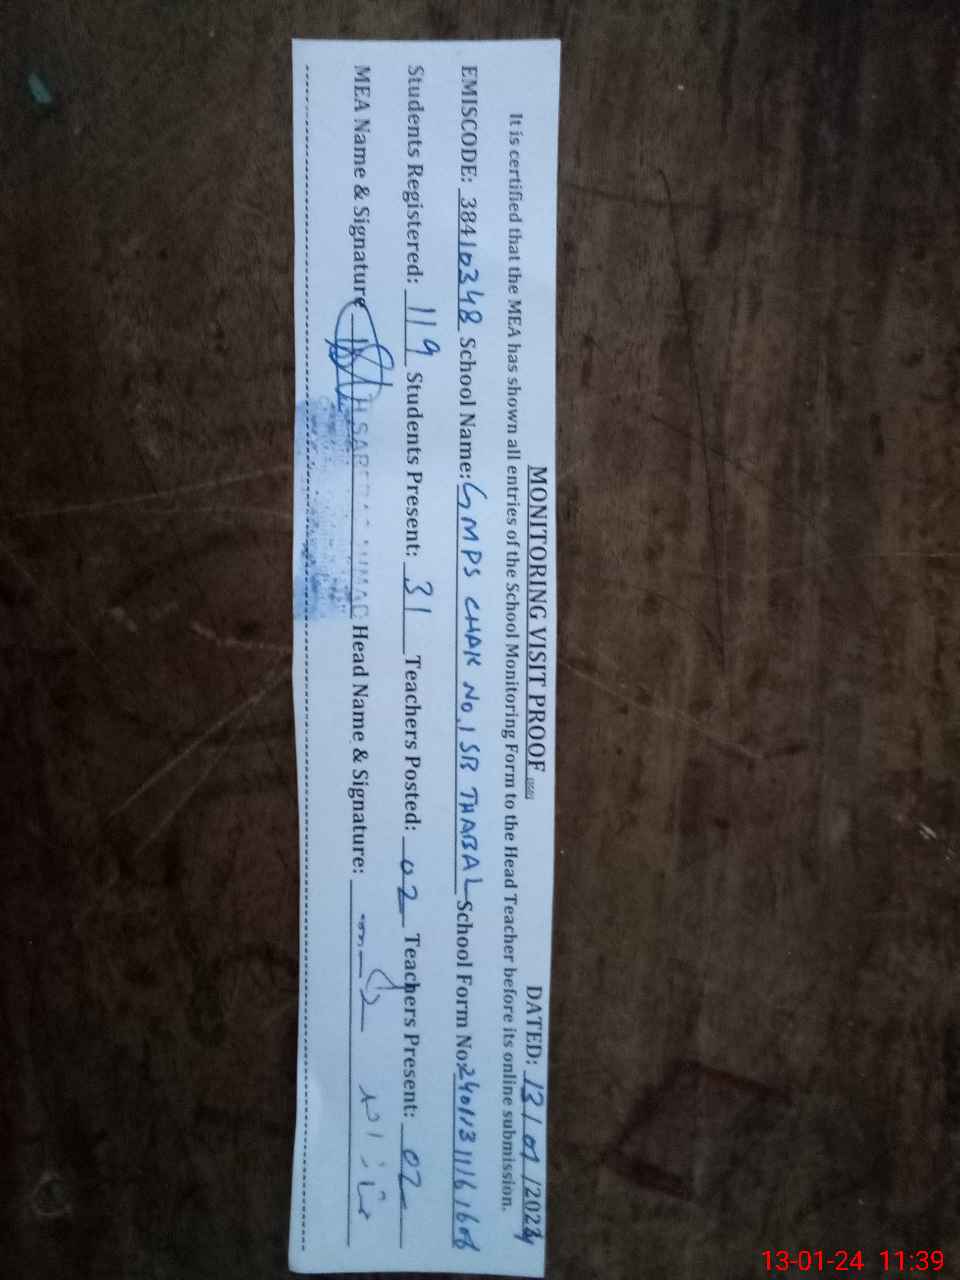 MONITORING VISIT PROOF DATED: 13/01/2024
It is certified that the MEA has shown all entries of the School Monitoring Form to the Head Teacher before its online submission.
EMISCODE: 38410348 School Name: GMPS CHAK No.1 SB THABAL School Form No:
Students Registered: 119 Students Present: 31 Teachers Posted: 02 Teachers Present: 02
MEA Name & Signature Head Name & Signature:
13-01-24 11:39